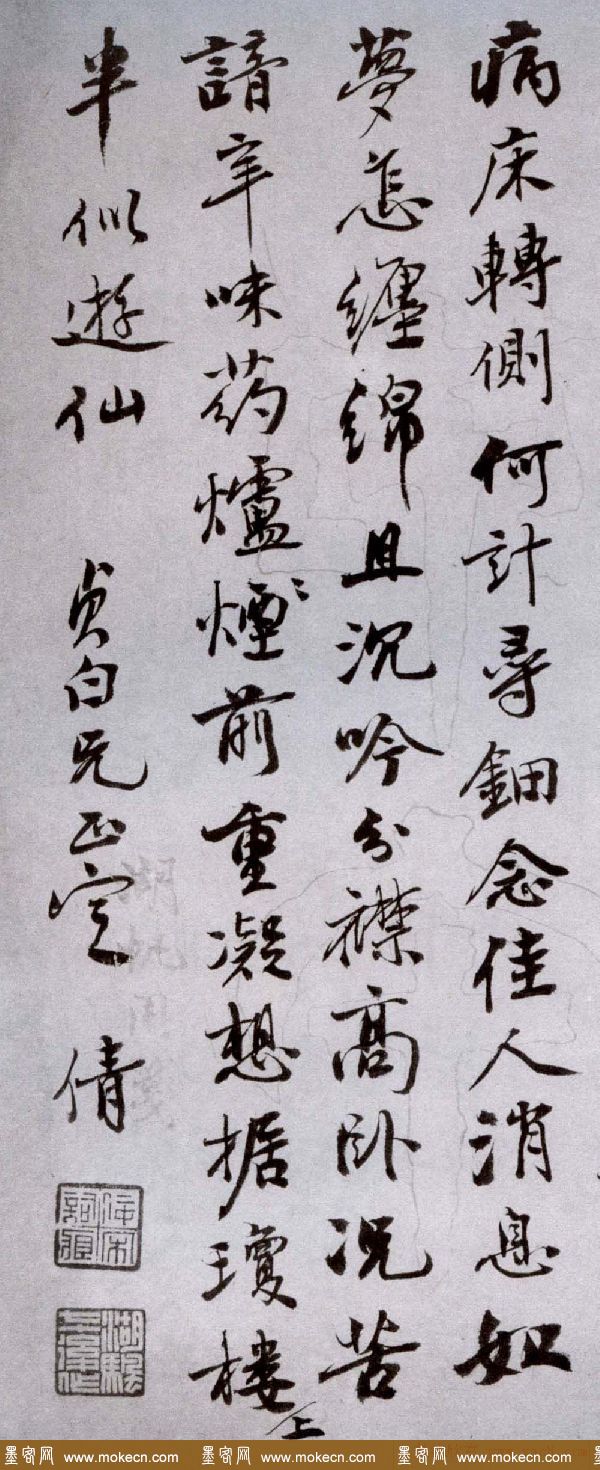 病床轉側何計尋鈿念佳人消息如
夢怎纏綿且沉吟分襟高卧況苦
諳辛味药爐煙前重凝想据瓊樓上
半似遊仙 貞白兄正定 倩
佞宋詞痕
湖帆用箋
墨客网 www.mokecn.com 墨客网 www.mokecn.com 墨客网 www.mokecn.com